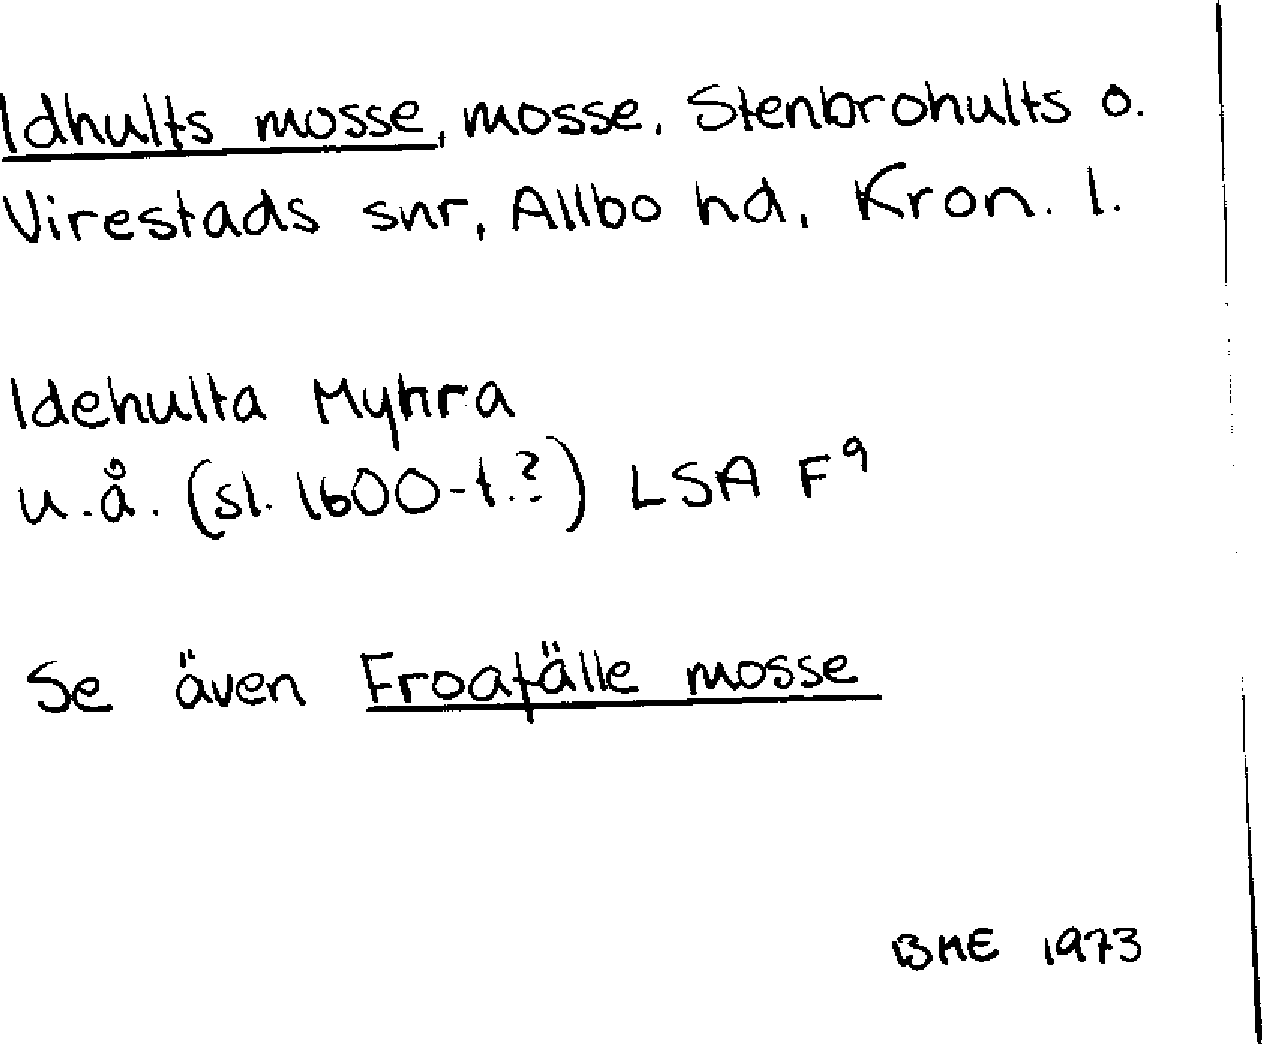 Idhults mosse, mosse, Stenbrohults o.
Virestads snr, Allbo hd, Kron. l.
Idehulta Myhra
u.å. (sl. 1600-t.?) LSA F⁹
Se även Froafälle mosse
BME 1973